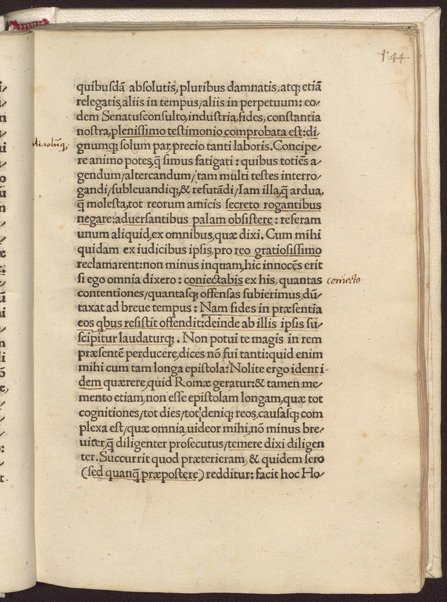 144
quibusdā absolutis, pluribus damnatis, atq; etiā
relegatis, aliis in tempus/aliis in perpetuum: eo/
dem Senatusconsulto, industria, fides, constantia
nostra, plenissimo testimonio comprobata est: di/
gnumq; solum par, precio tanti laboris. Concipe/
re animo potes, q̄ simus fatigati: quibus totiēs a/
gendum/altercandum/tam multi testes interro/
gandi/subleuandiq;, & refutādi/Iam illa, q̄ ardua,
q̄ molesta, tot reorum amicis secreto rogantibus
negare: aduersantibus palam obsistere: referam
unum aliquid, ex omnibus, quæ dixi. Cum mihi
quidam ex iudicibus ipsis, pro reo gratiosissimo
reclamarent: non minus inquam, hic innocēs erit
si ego omnia dixero: coniectabis ex his, quantas
coniecto
contentiones/quantasq; offensas subierimus, dū/
taxat ad breue tempus: Nam fides in præsentia
eos qbus resistit offendit: deinde ab illis ipsis su/
scipitur laudaturq;. Non potui te magis in rem
præsentē perducere, dices nō fui tanti: quid enim
mihi cum tam longa epistola: Nolite ergo identi/
dem quærere, quid Romæ geratur: & tamen me/
mento etiam, non esse epistolam longam, quæ tot
cognitiones/tot dies/tot deniq; reos, causasq; com
plexa est/quæ omnia, uideor mihi, nō minus bre/
uiter, q̄ diligenter prosecutus/temere dixi diligen
ter. Succurrit quod præterieram, & quidem sero
(sed quanq̄ præpostere) redditur: facit hoc Ho/